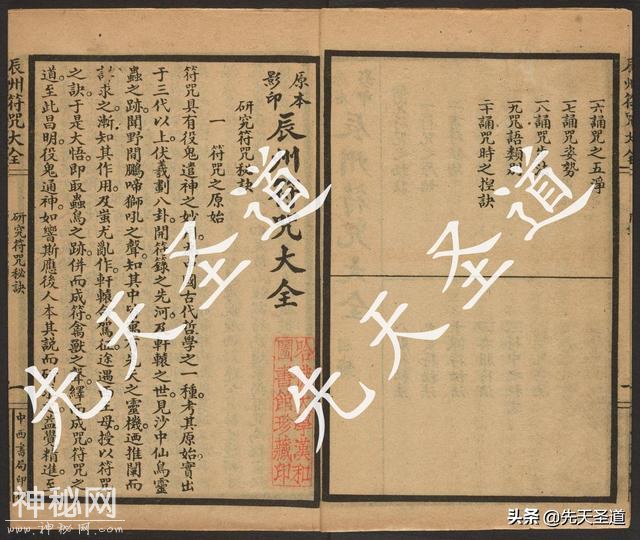 辰州符咒大全
六誦咒之五淨
七誦咒姿勢
八誦咒
九咒語類
十誦咒時之揑訣
原本影印 辰州符咒大全
研究符咒秘訣
一 符咒之原始
符咒具有役鬼遣神之妙 國古代哲學之一種考其原始實出
于三代以上伏羲劃八卦開符籙之先河及軒轅之世見沙中仙鳥靈
蟲之跡聞野間鵬啼獅吼之聲知其中 先天之靈機迺推闡而
求之漸知其作用及蚩尤亂作軒轅 駕征途遇 王母授以符咒
之訣于是大悟即取蟲鳥之跡倂而成符禽獸之聲繹 成咒符咒之
道至此昌明役鬼通神如響斯應後人本其說而研 益覺精進至
辰州符咒大全
研究符咒秘訣
一
中西書局印
哈 學漢和
圖書館珍藏印
先天圣道
先天圣道
神秘网
www.神秘网.com
头条 @先天圣道